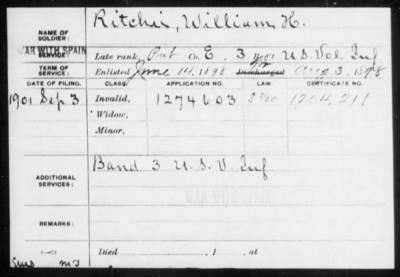 NAME OF SOLDIER: Ritchie, William H.
WAR WITH SPAIN
SERVICE: Late rank, Pvt Co. E, 3 Reg't U.S. Vol. Inf
TERM OF SERVICE: Enlisted June 14, 1898 Discharged Aug 3, 1898
DATE OF FILING. CLASS. APPLICATION NO. LAW CERTIFICATE NO.
1901 Sep. 3 Invalid, 1274603 1204,211
Widow,
Minor,
ADDITIONAL SERVICES: Band 3 U.S.V. Inf
REMARKS:
Died , 1 , at